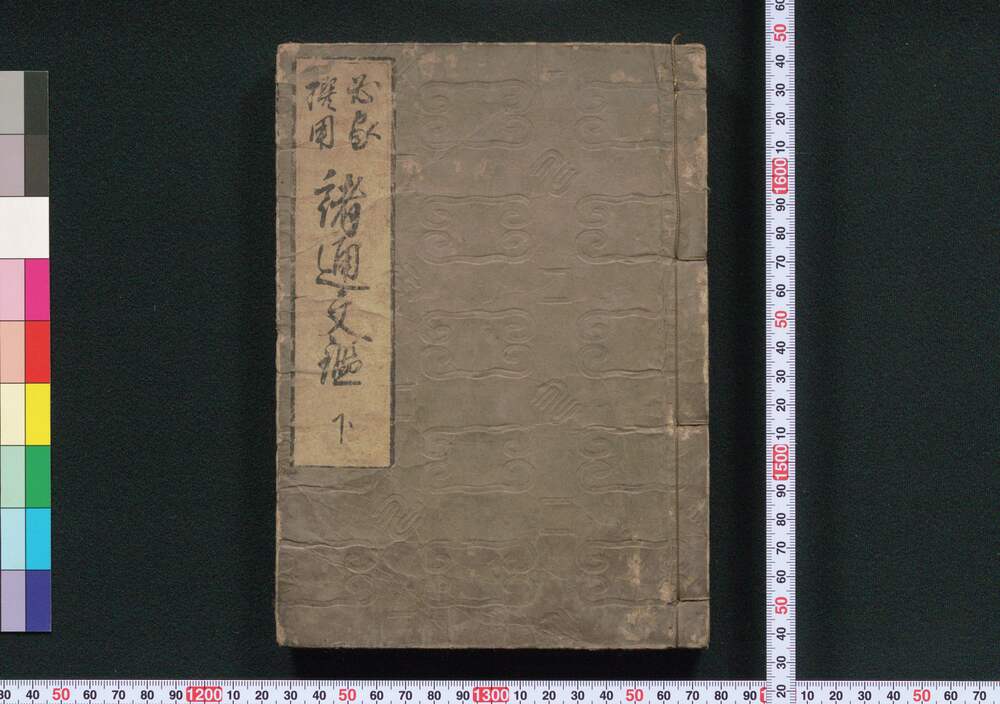 諸通文鑑
下
60 50 40 30 20 10 1600 90 80 70 60 50 40 30 20 10 1500 90 80 70 60 50 40 30 20
30 40 50 60 70 80 90 1200 10 20 30 40 50 60 70 80 90 1300 10 20 30 40 50 60 70 80 90 10 20 30 40 50 60 70